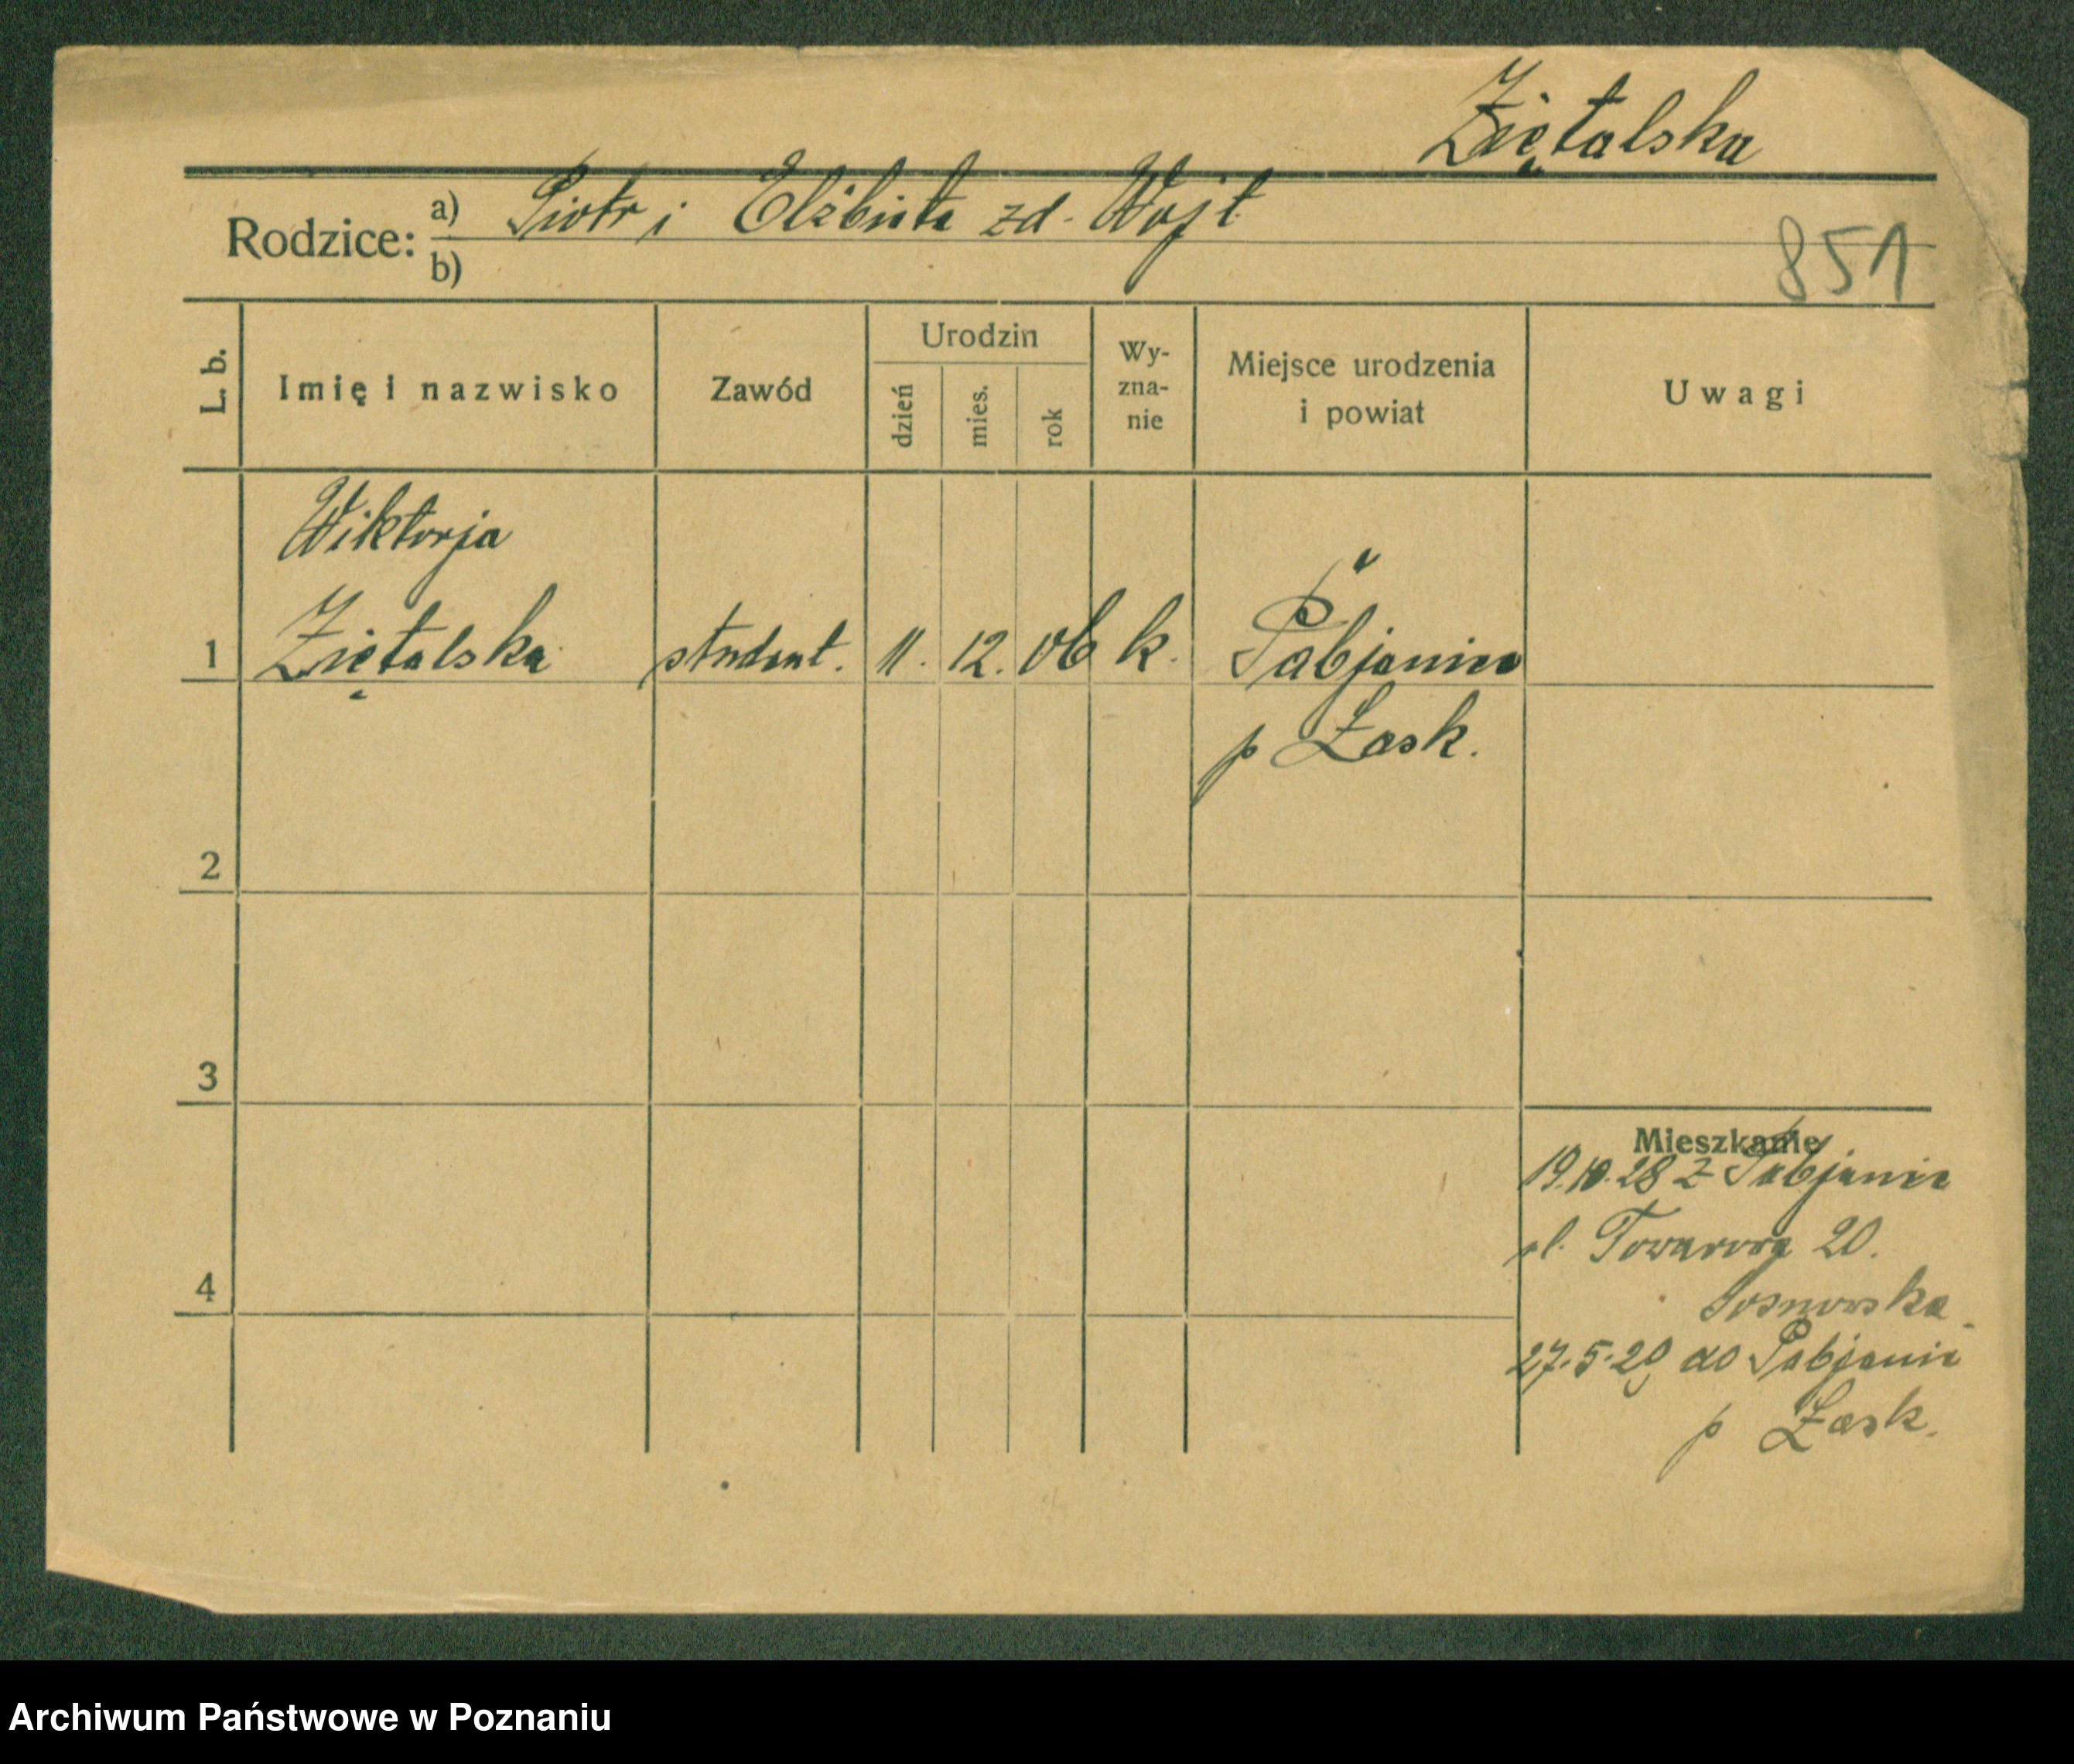 Ziętalska
Rodzice: a) Piotr i Elżbieta zd. Wojt
b)
851
L. b. Imię i nazwisko Zawód Urodzin dzień mies. rok Wy-zna-nie Miejsce urodzenia i powiat Uwagi
Wiktorja
1 Ziętalska student. 11. 12. 06 k. Pabjanice
p Łask.
2
3
Mieszkanie
19.10.28 z Pabjanic
ul. Towarowa 20.
4
Sosnowska
27.5.29 do Pabjanic
p Łask.
Archiwum Państwowe w Poznaniu